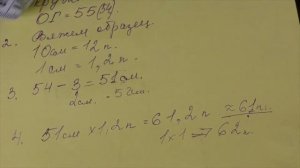 ОГ = 55 (54)
2. Вяжем образец
10 см = 12 п.
1 см = 1,2 п.
3. 54 - 3 = 51 см.
2 см = 52 см.
4. 51 см × 1,2 п = 61,2 п ≈ 61 п.
1 × 1 → 62 п.